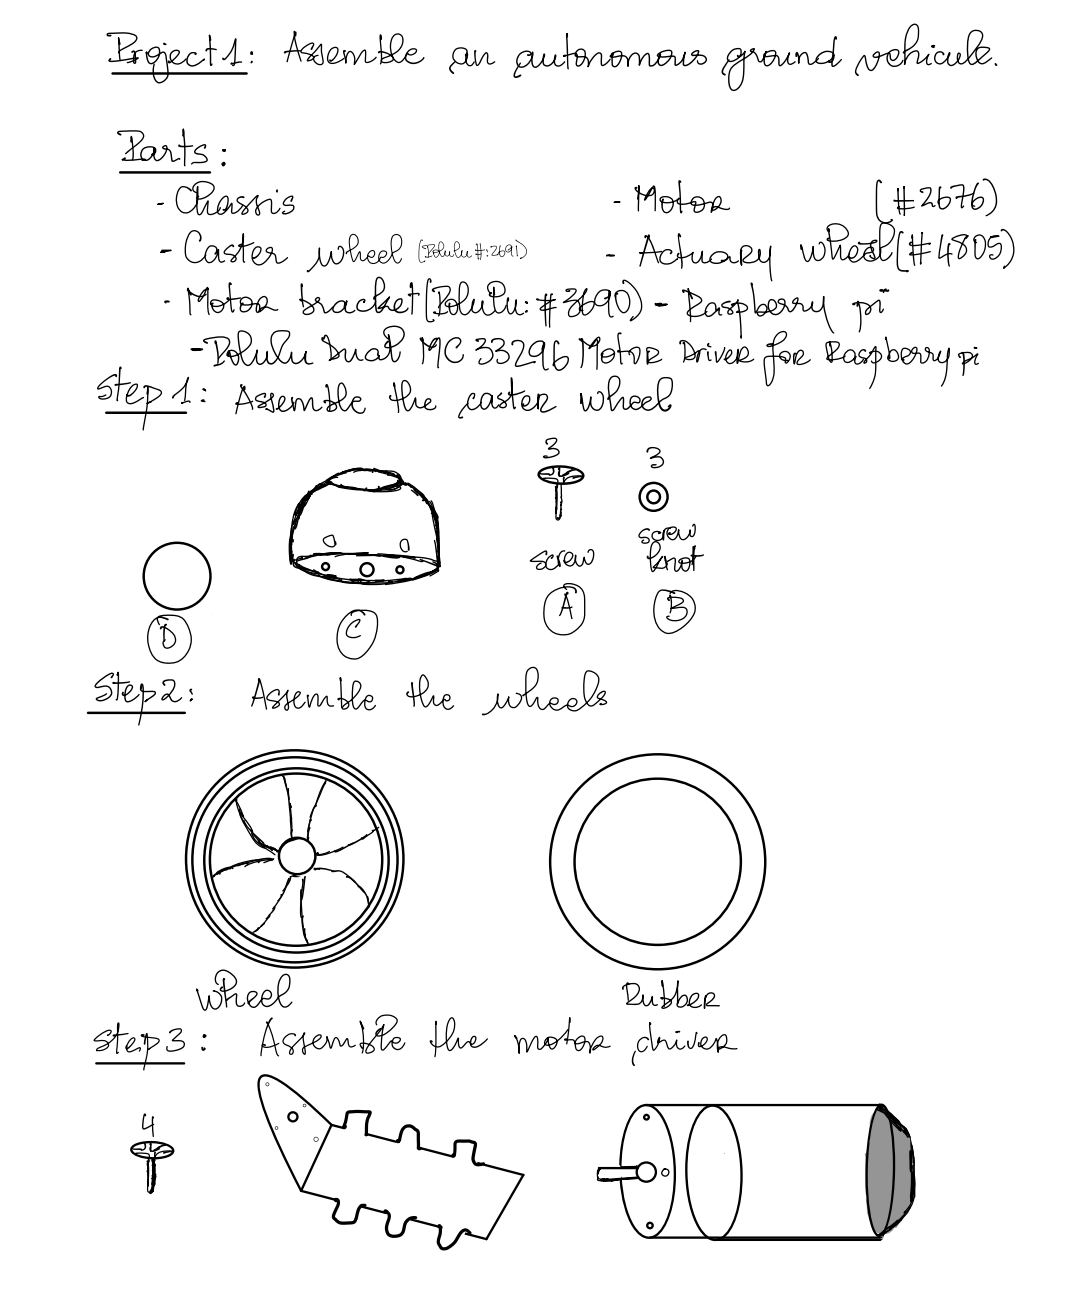 Project1: Assemble an autonomous ground vehicule.
Parts:
- Chassis - Motor (#2676)
- Caster wheel (Polulu #:2691) - Actuary wheel (#4805)
- Motor bracket (Polulu: #3690) - Raspberry pi
- Polulu Dual MC 33296 Motor Driver for Raspberry pi
Step 1: Assemble the caster wheel
3 3
screw screw knot
D C A B
Step2: Assemble the wheels
wheel Rubber
Step3: Assemble the motor driver
4